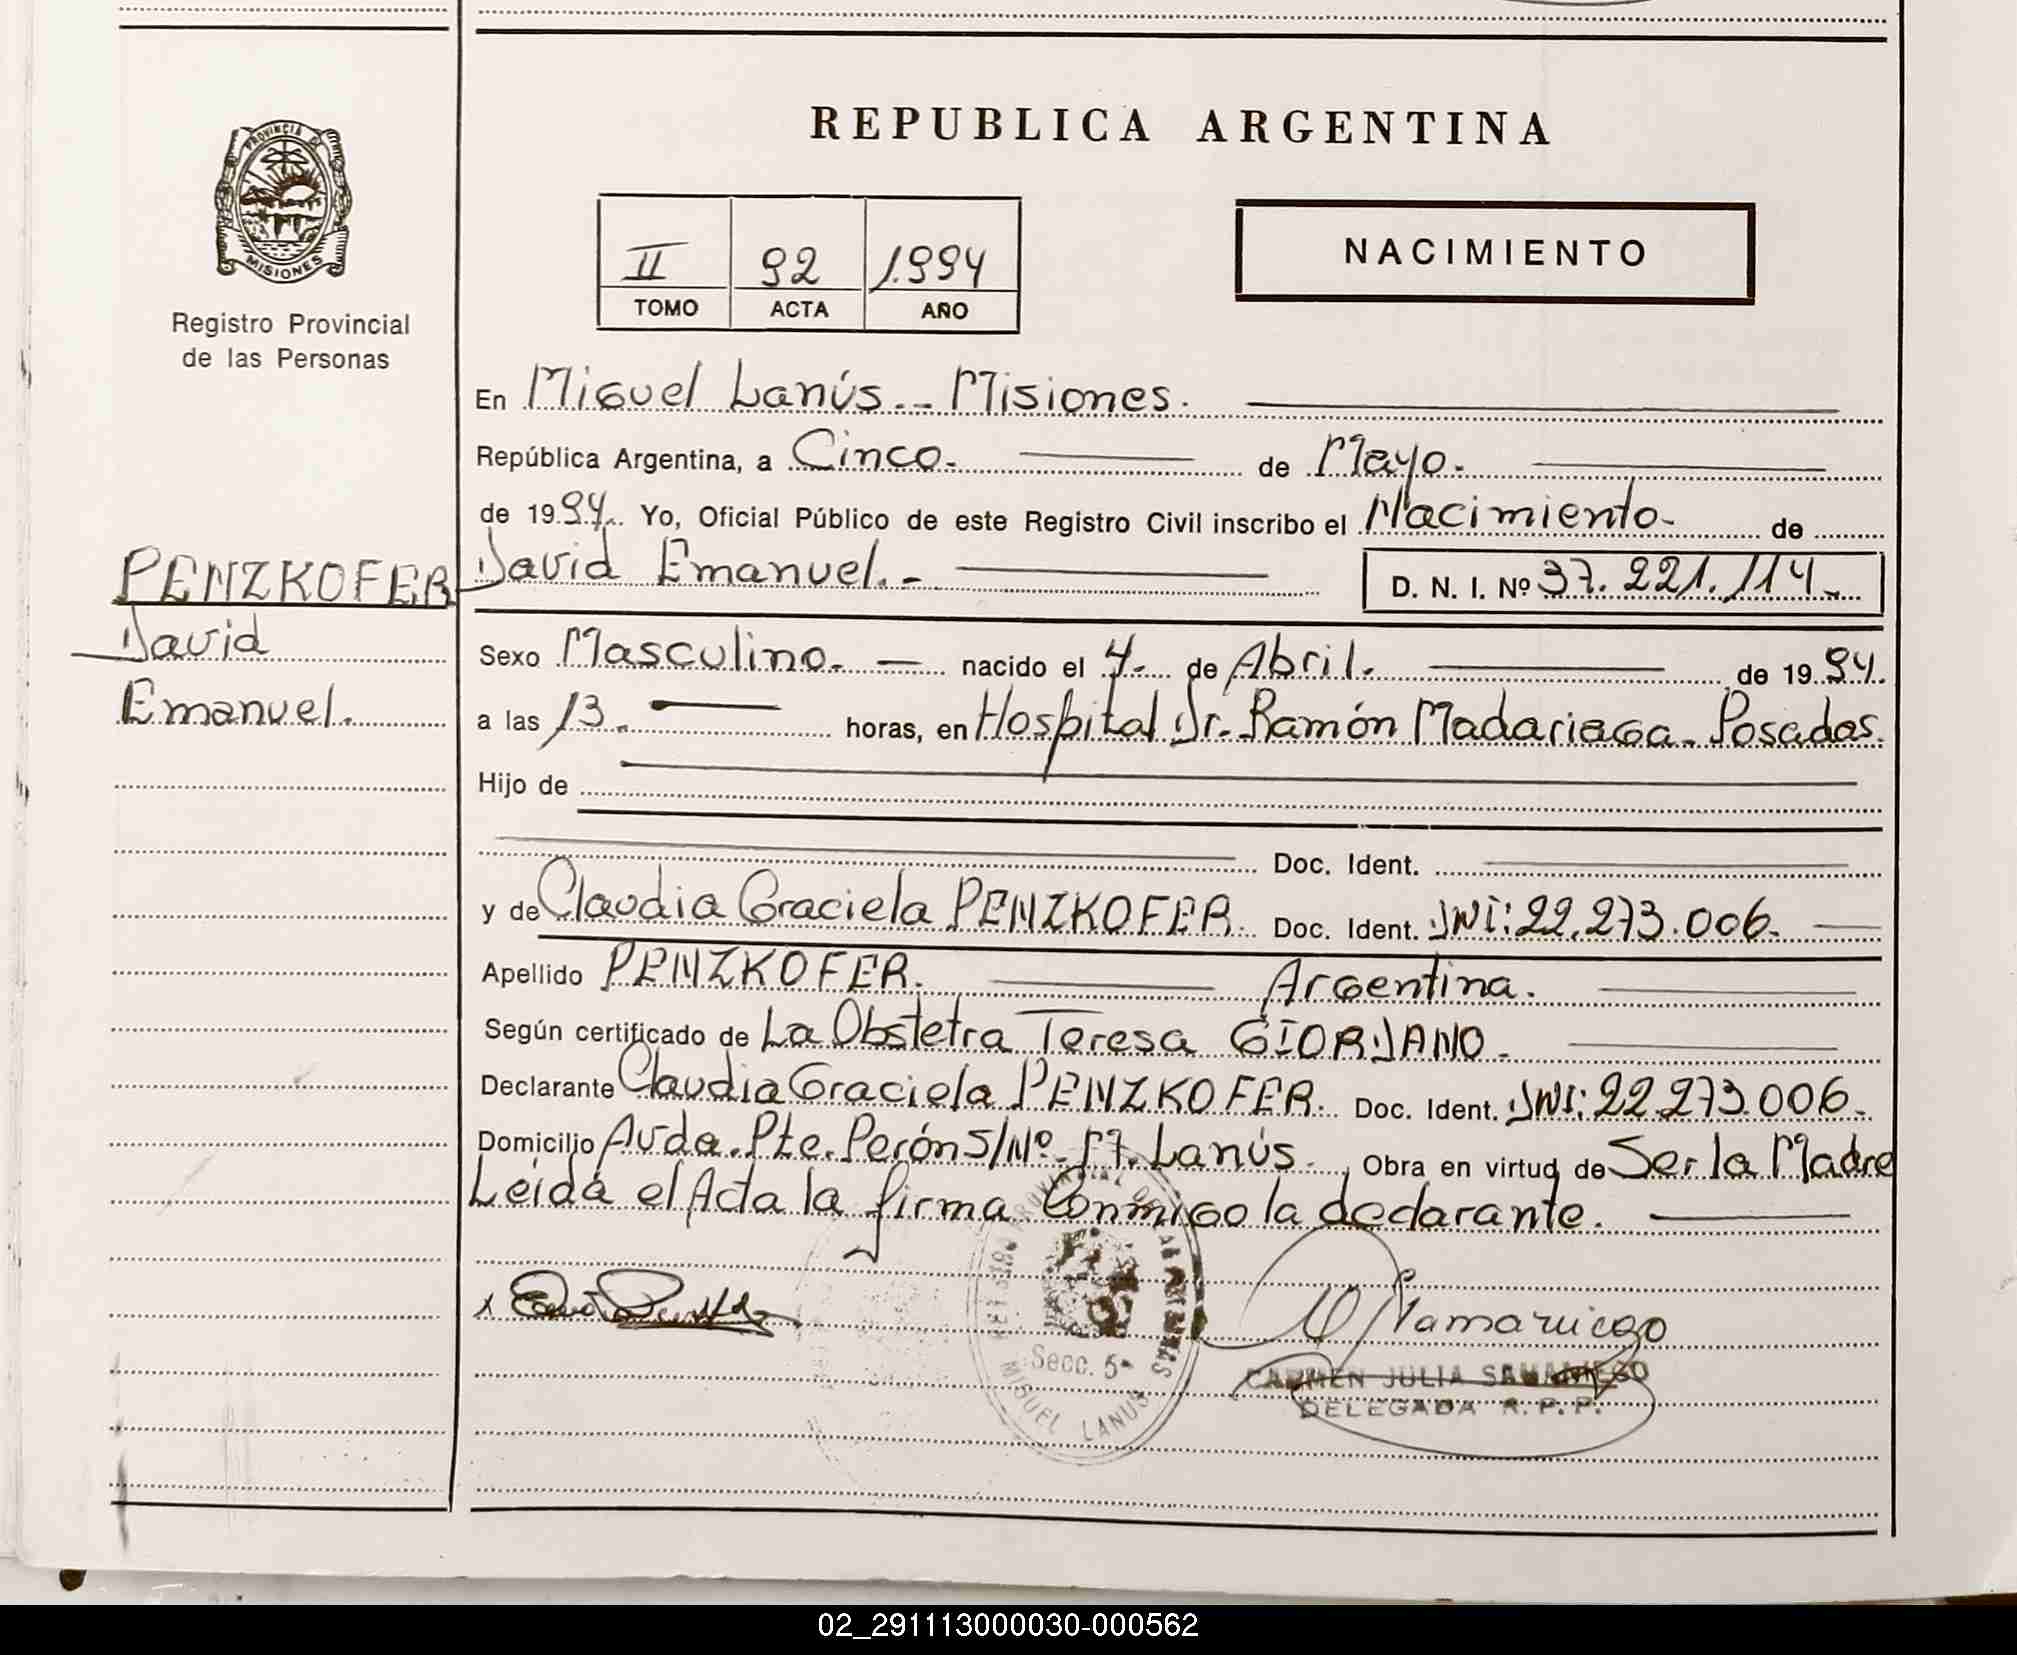 REPUBLICA ARGENTINA
PROVINCIA DE
MISIONES
Registro Provincial
de las Personas
II 92 1.994
TOMO ACTA AÑO
NACIMIENTO
En Miguel Lanús.-- Misiones.
República Argentina, a Cinco.- de Mayo.-
de 1994.. Yo, Oficial Público de este Registro Civil inscribo el Nacimiento- de
PENZKOFER
David
Emanuel.
David Emanuel.- D. N. I. Nº 37.221.114.-
Sexo Masculino.- nacido el 4.- de Abril. de 1994.
a las 13. horas, en Hospital Dr. Ramón Madariaga- Posadas.
Hijo de
Doc. Ident.
y de Claudia Graciela PENZKOFER. Doc. Ident. DNI: 22.273.006.
Apellido PENZKOFER. Argentina.
Según certificado de La Obstetra Teresa GIORDANO.
Declarante Claudia Graciela PENZKOFER. Doc. Ident. DNI: 22.273.006.
Domicilio Avda. Pte. Perón S/Nº- M. Lanús. Obra en virtud de Ser la Madre
Leida el Acta la firma Conmigo la declarante.
Secc. 5ª
MIGUEL LANUS
CARMEN JULIA SAMANIEGO
DELEGADA R.P.P.
02_291113000030-000562